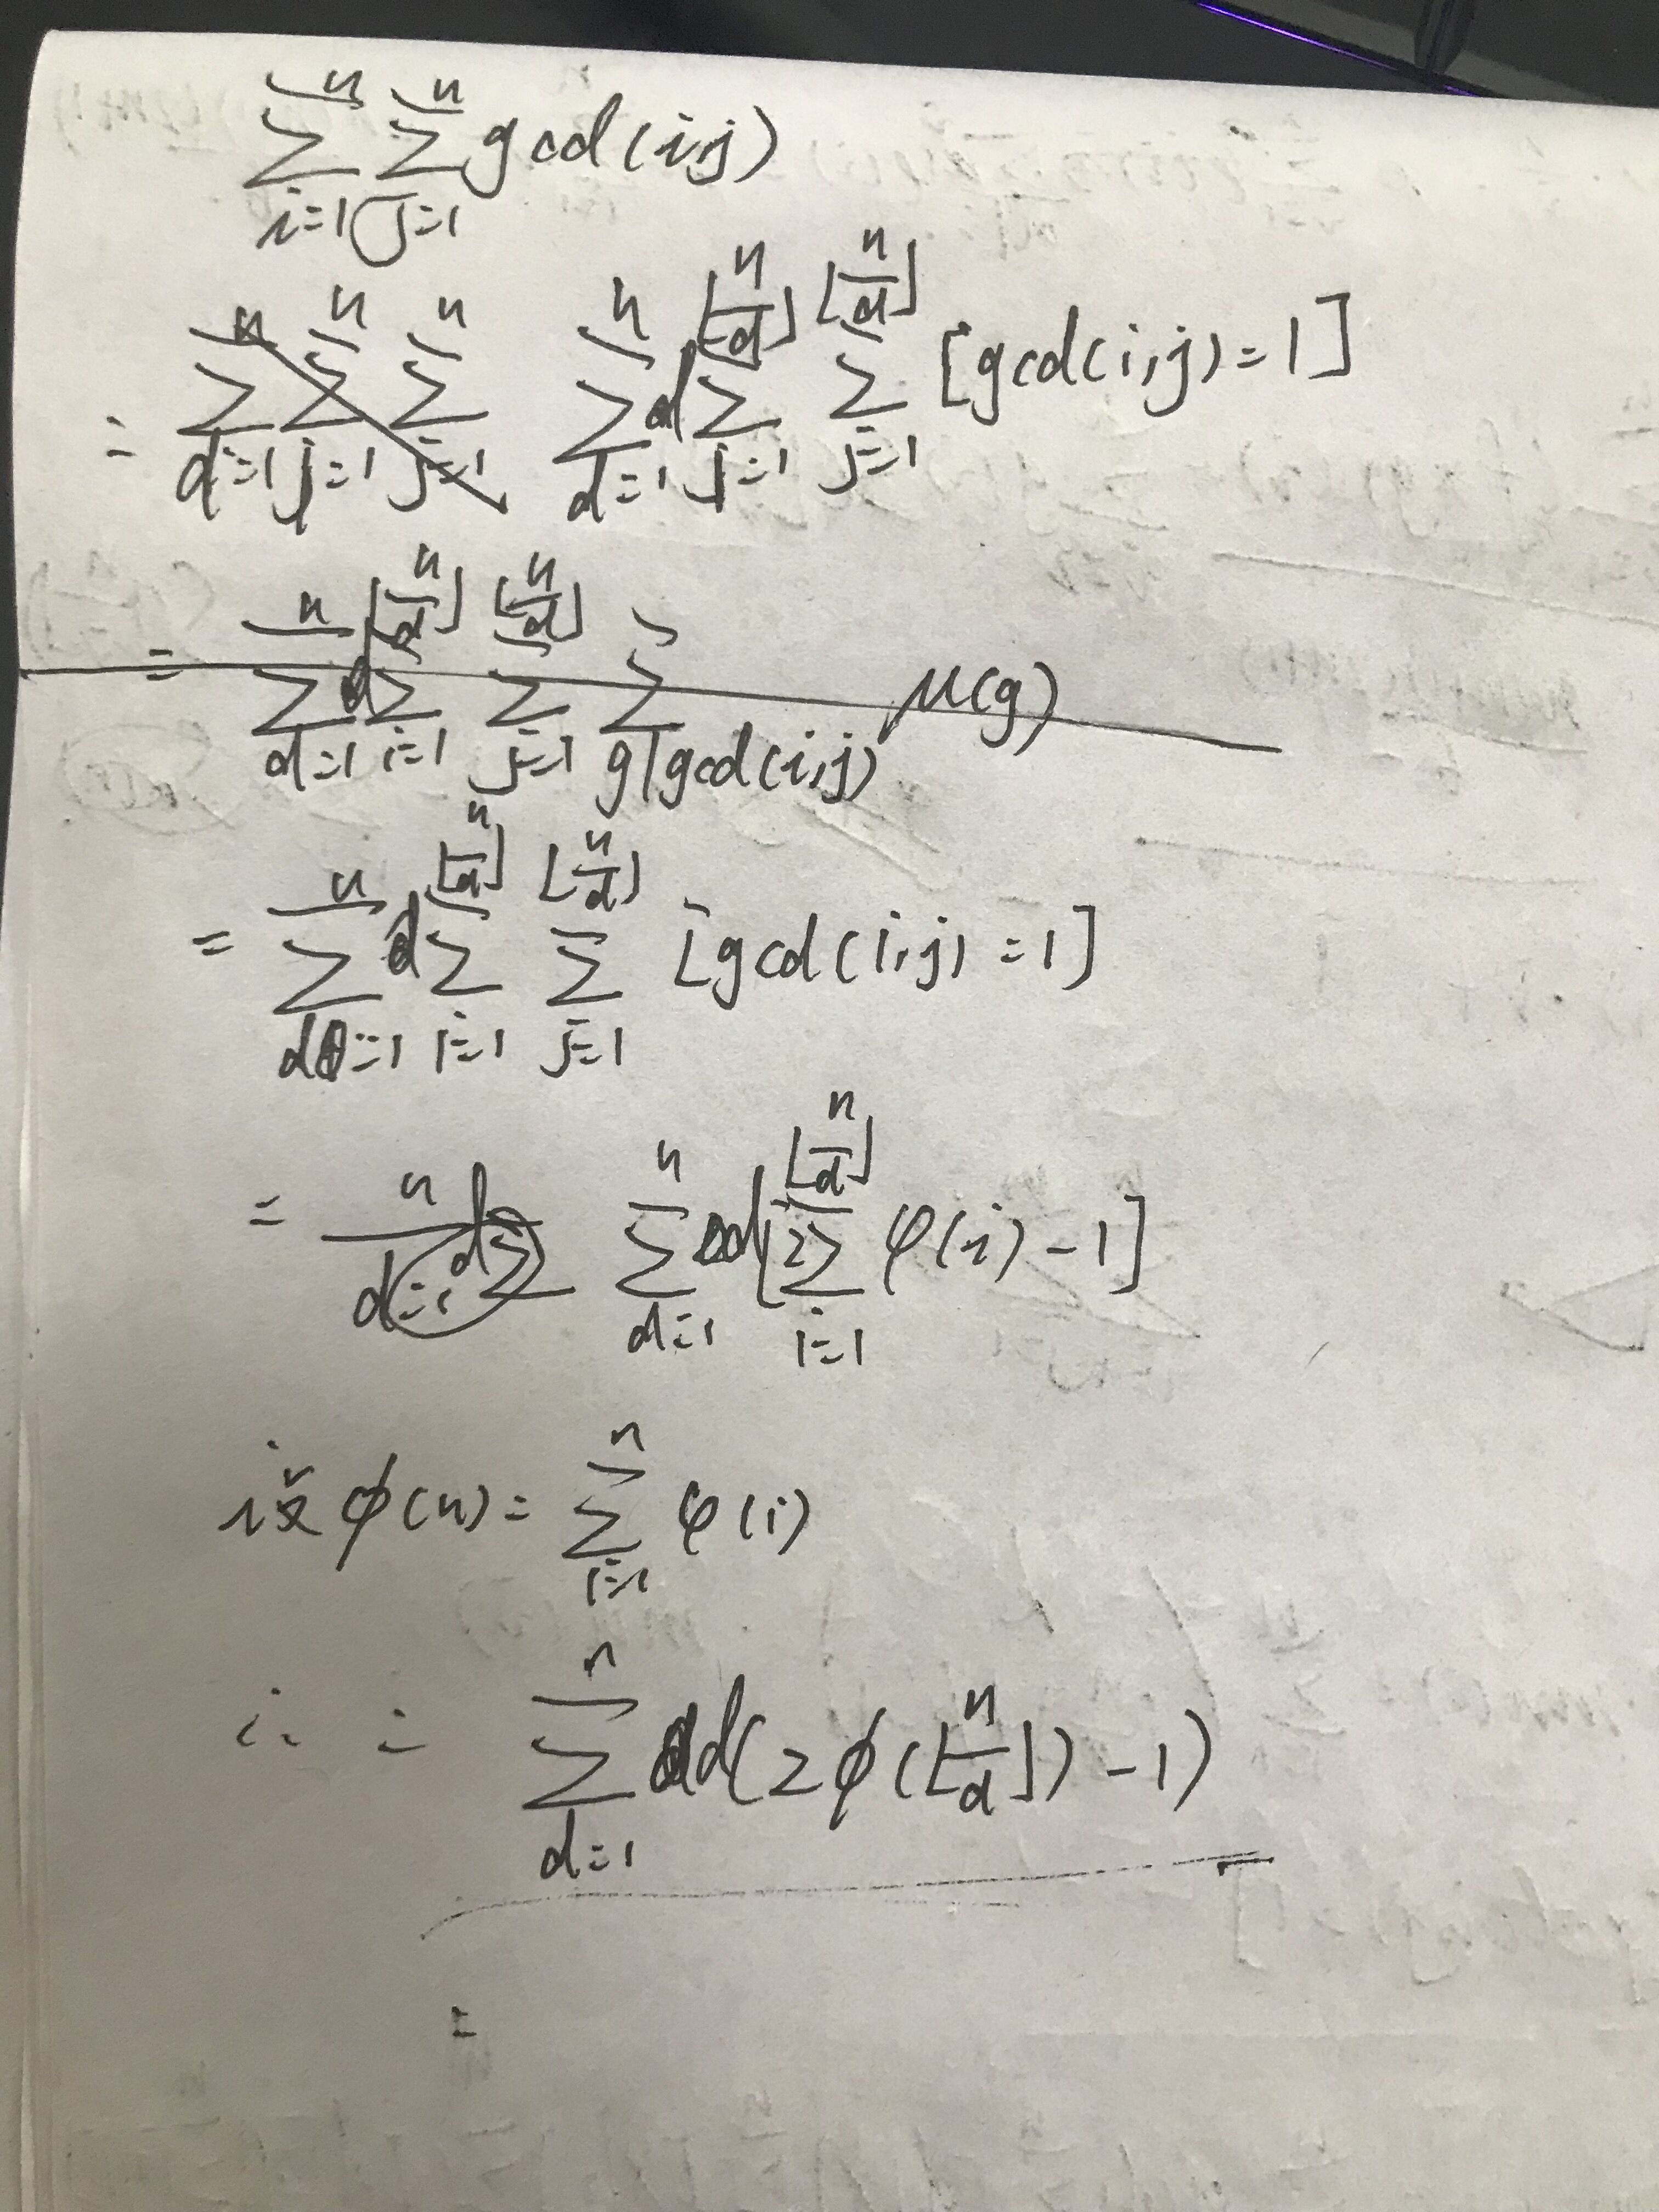 $\sum_{i=1}^{n}\sum_{j=1}^{n}gcd(i,j)$
$=\sum_{d=1}^{n}\sum_{j=1}^{n}\sum_{j=1}^{n}\quad\sum_{d=1}^{n}d\sum_{j=1}^{\lfloor\frac{n}{d}\rfloor}\sum_{j=1}^{\lfloor\frac{n}{d}\rfloor}[gcd(i,j)=1]$
$=\sum_{d=1}^{n}d\sum_{i=1}^{\lfloor\frac{n}{d}\rfloor}\sum_{j=1}^{\lfloor\frac{n}{d}\rfloor}\sum_{g|gcd(i,j)}\mu(g)$
$=\sum_{d=1}^{n}d\sum_{i=1}^{\lfloor\frac{n}{d}\rfloor}\sum_{j=1}^{\lfloor\frac{n}{d}\rfloor}[gcd(i,j)=1]$
$=\sum_{d=1}^{n}d[2\sum_{i=1}^{\lfloor\frac{n}{d}\rfloor}\varphi(i)-1]$
设 $\phi(n)=\sum_{i=1}^{n}\varphi(i)$
$=\sum_{d=1}^{n}d(2\phi(\lfloor\frac{n}{d}\rfloor)-1)$
=